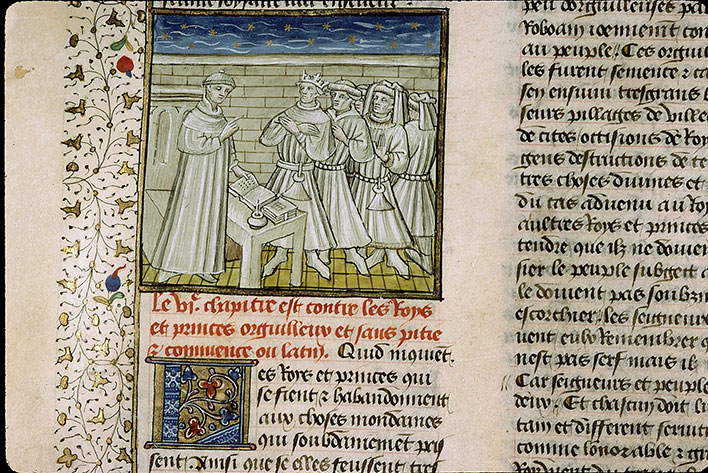 Le vi.e chapitre est contre les Roys
et princes orguilleux et sans pitie
& commence ou latin. Quid inquiet.
es Roys et princes qui
se fient & habandonnent
aux choses mondaines
qui soubdainemet peris
sent. Ainsi que se elles feussent tres
peu dorguilleuses pa
Roboam
au peuple. Ces orguil
les furent semence & ca
soy ensuiui tresgrans
seurs pillages de ville
de cites occisions de Roy
gens destructions de te
tres choses diuines et
du cas aduenu au Roy
aultres Roys et princes
tendre que ilz ne doiuen
sier le peuple subgect
le doiuent pas soubz
escorchier. les seigneurs
Remembrer q
nest pas serf mais il
Car seigneurs et peuple
deux. Et chascun doit
tain et different seruice
comme honorable &